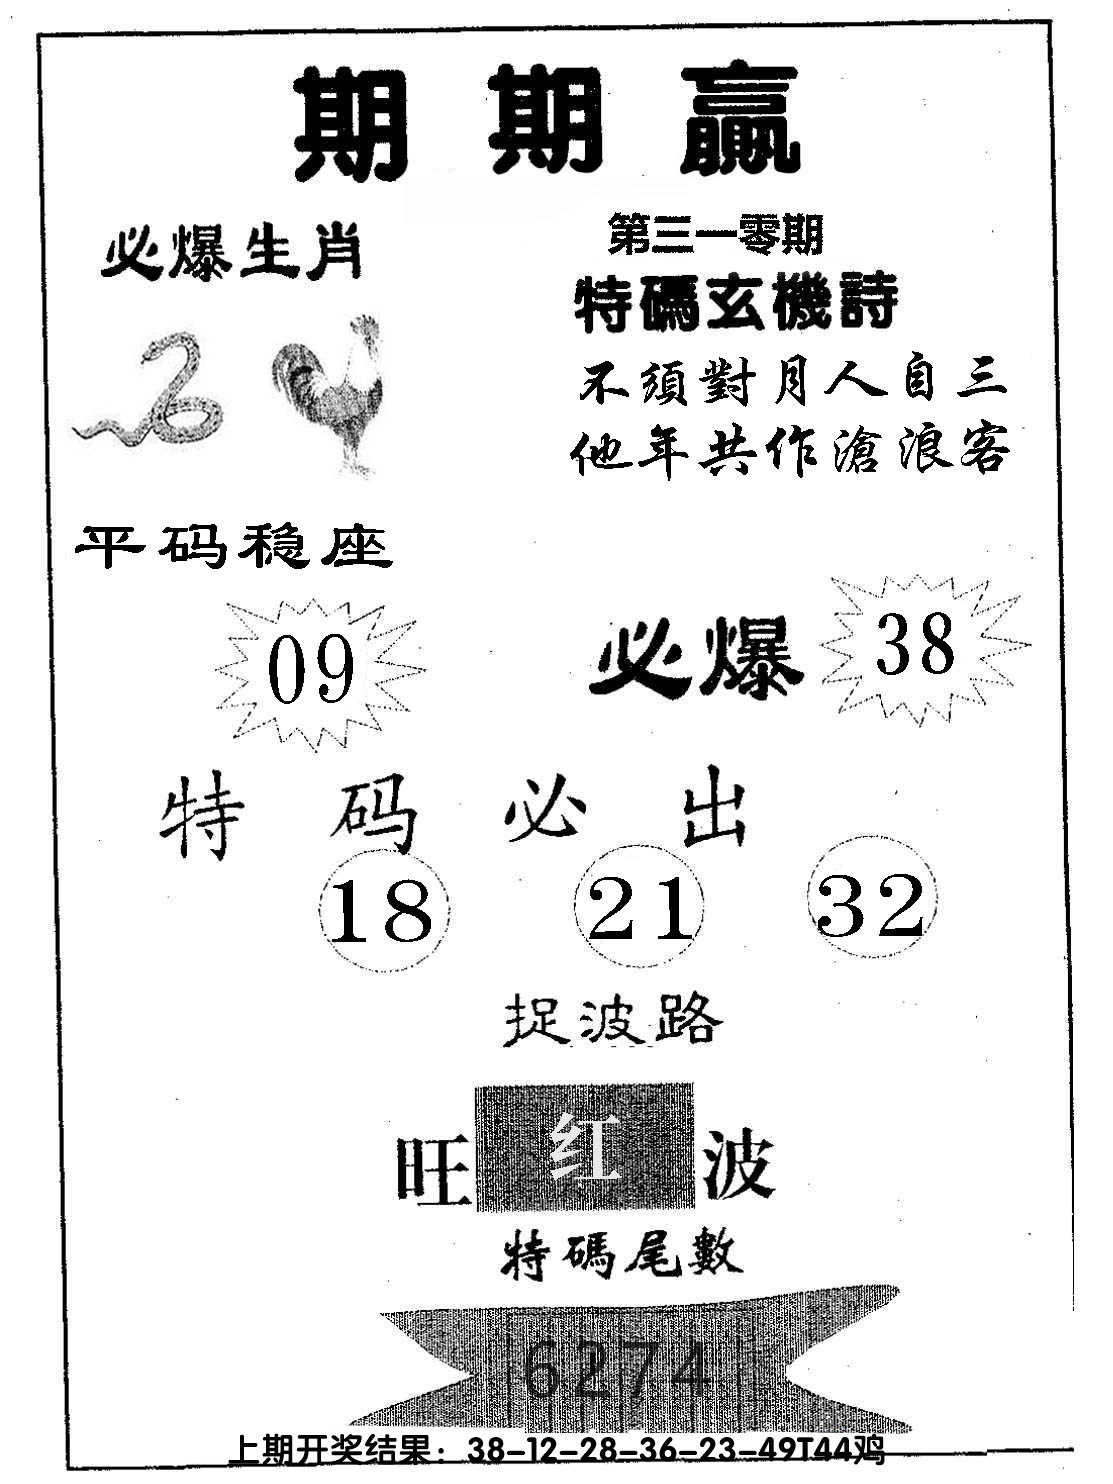 期期赢
必爆生肖
第三一零期
特碼玄機詩
不須對月人自三
他年共作滄浪客
平码稳座
09
必爆 38
特码必出
18 21 32
捉波路
旺红波
特碼尾數
6274
上期开奖结果：38-12-28-36-23-49T44鸡